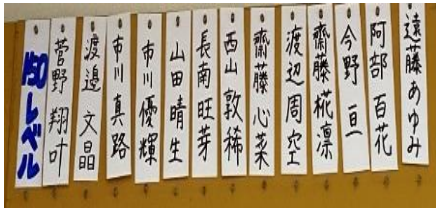 遠藤あゆみ
阿部百花
今野亘
齋藤椛凛
渡辺周空
齋藤心菜
西山敦稀
長南旺芽
山田晴生
市川優輝
市川真路
渡邉文晶
菅野翔叶
150レベル